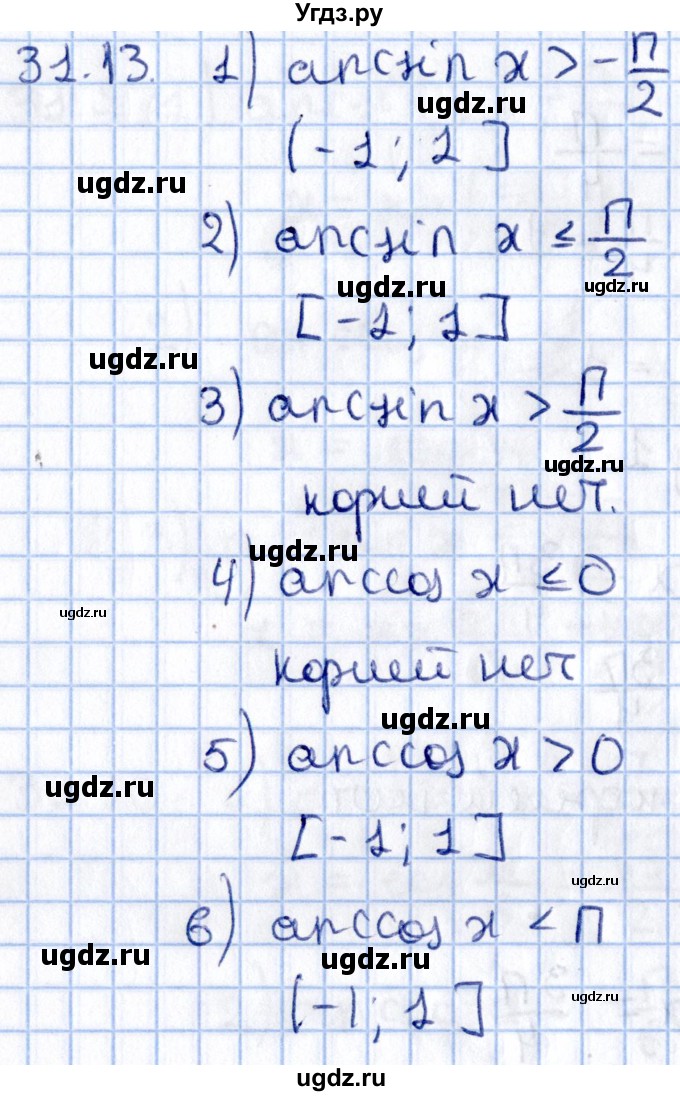 Угдз.ру
31.13. 1) arcsin x > -П/2
ugdz.ru
(-1; 1]
ugdz.ru
2) arcsin x ≤ П/2
ugdz.ru
ugdz.ru
[-1; 1]
ugdz.ru
3) arcsin x > П/2
ugdz.ru
корней нет.
ugdz.ru
4) arccos x ≤ 0
ugdz.ru
корней нет
ugdz.ru
5) arccos x > 0
ugdz.ru
[-1; 1]
ugdz.ru
6) arccos x < П
ugdz.ru
ugdz.ru
(-1; 1]
ugdz.ru
ugdz.ru